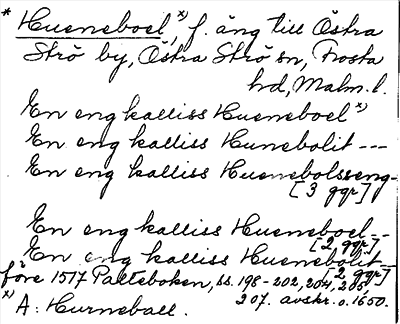 * Hueneboel x), f. äng till Östra
Strö by, Östra Strö sn, Frosta
hd, Malm. l.
En eng kalliss Hueneboel x)
En eng kalliss Hunebolit ---
En eng kalliss Huenebolsseng-
[3 ggr]
En eng kalliss Hueneboel --
[2 ggr]
En eng kalliss Huenebolit --
[2 ggr]
före 1517 Palteboken, ss. 198-202, 204, 205,
207. avskr. o. 1650.
x) A: Hurneball.